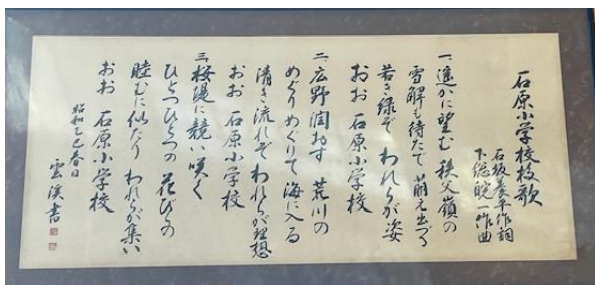 石原小学校校歌
石坂養平作詞
下総皖一作曲
一、遥かに望む 秩父嶺の
雪解も待たで 萌え出づる
若き緑ぞ われらが姿
おお 石原小学校
二、広野潤おす 荒川の
めぐりめぐりて 海に入る
清き流れぞ われらが理想
おお 石原小学校
三、桜堤に競い咲く
ひとつひとつの 花びらの
睦むに似たり われらが集い
おお 石原小学校
昭和乙巳春日
雲溪書